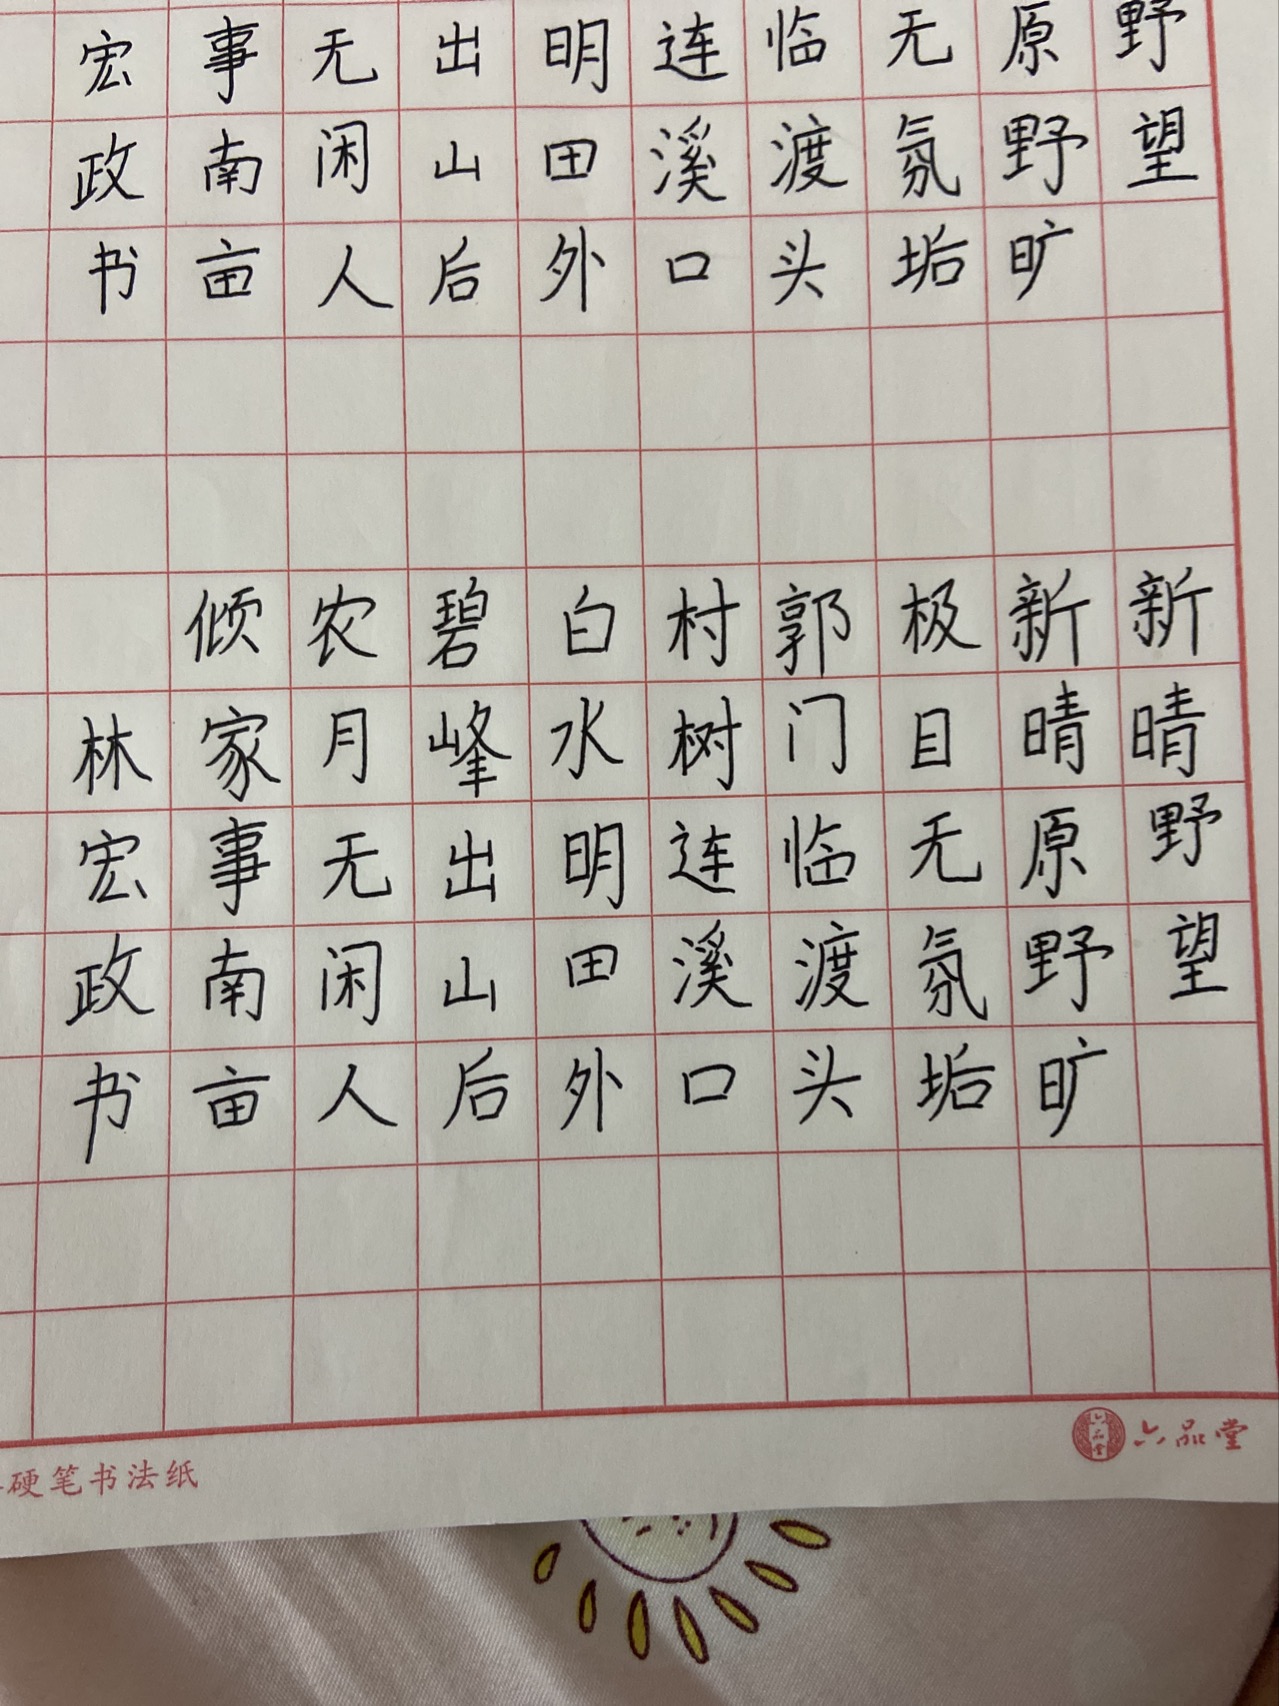 野望
原野旷
无氛垢
临渡头
连溪口
明田外
出山后
无闲人
事南亩
宏政书
新晴野望
新晴原野旷
极目无氛垢
郭门临渡头
村树连溪口
白水明田外
碧峰出山后
农月无闲人
倾家事南亩
林宏政书
硬笔书法纸
六品堂
六品堂